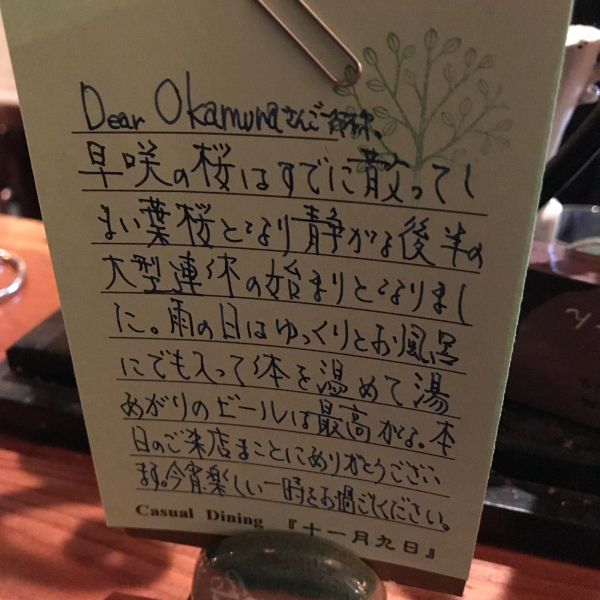 Dear Okamuraさんご一行様、
早咲の桜はすでに散ってし
まい葉桜となり静かな後半の
大型連休の始まりとなりまし
た。雨の日はゆっくりとお風呂
にでも入って体を温めて湯
あがりのビールは最高かな。本
日のご来店まことにありがとうござい
ます。今宵楽しい一時をお過ごしください。
Casual Dining 『十一月九日』